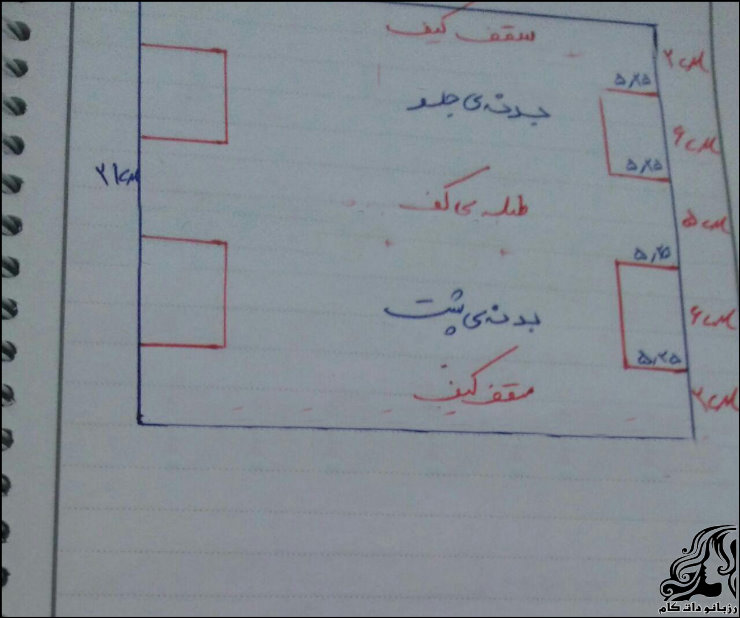 سقف کیف
۲س
۵٫۲۵
بدنه‌ی جلو
۶س
۵٫۲۵
۲۱س
طبله‌ی کف
۵س
۵٫۲۵
بدنه‌ی پشت
۶س
۵٫۲۵
سقف کیف
۲س
رزبانو دات کام